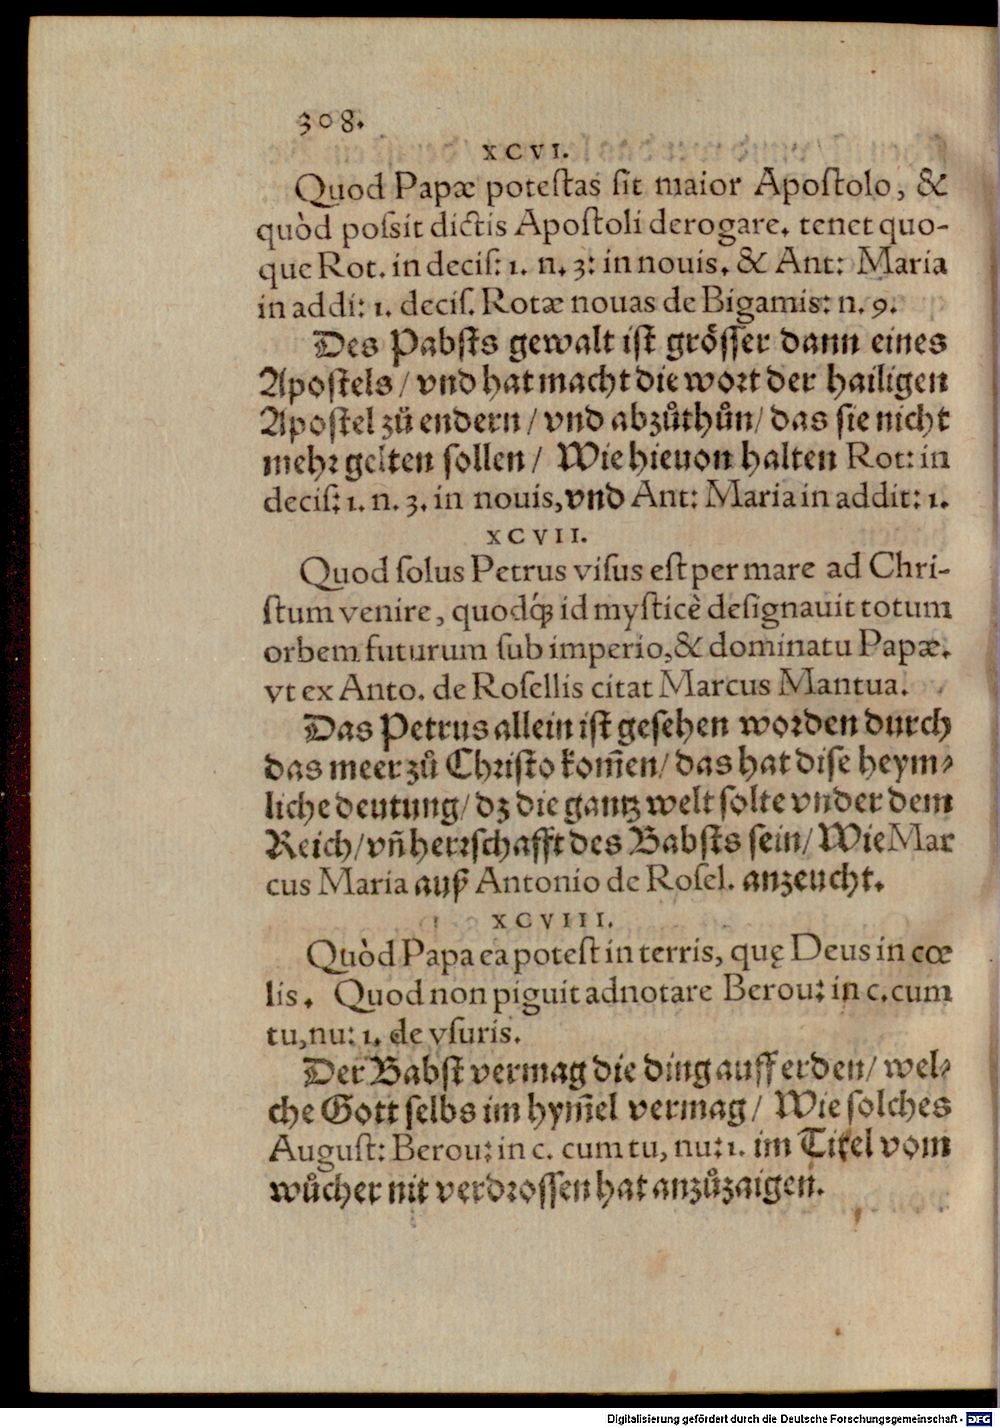 308.
XCVI.
Quod Papæ potestas sit maior Apostolo, &
quòd possit dictis Apostoli derogare. tenet quo-
que Rot. in decis: 1. n. 3: in nouis. & Ant: Maria
in addi: 1. decis. Rotæ nouas de Bigamis: n. 9.
Des Pabsts gewalt ist grösser dann eines
Apostels / vnd hat macht die wort der hailigen
Apostel zů endern / vnd abzůthůn / das sie nicht
mehr gelten sollen / Wie hieuon halten Rot: in
decis: 1. n. 3. in nouis, vnd Ant: Maria in addit: 1.
XCVII.
Quod solus Petrus visus est per mare ad Chri-
stum venire, quodq́; id mysticè designauit totum
orbem futurum sub imperio, & dominatu Papæ.
vt ex Anto. de Rosellis citat Marcus Mantua.
Das Petrus allein ist gesehen worden durch
das meer zů Christo kom̃en / das hat dise heym-
liche deutung / dz die gantz welt solte vnder dem
Reich / vñ herrschafft des Babsts sein / Wie Mar
cus Maria auß Antonio de Rosel. anzeucht.
XCVIII.
Quòd Papa ea potest in terris, quę Deus in cœ
lis. Quod non piguit adnotare Berou: in c. cum
tu, nu: 1. de vsuris.
Der Babst vermag die ding auff erden / wel-
che Gott selbs im hym̃el vermag / Wie solches
August: Berou: in c. cum tu, nu: 1. im Titel vom
wůcher nit verdrossen hat anzůzaigen.
Digitalisierung gefördert durch die Deutsche Forschungsgemeinschaft - DFG